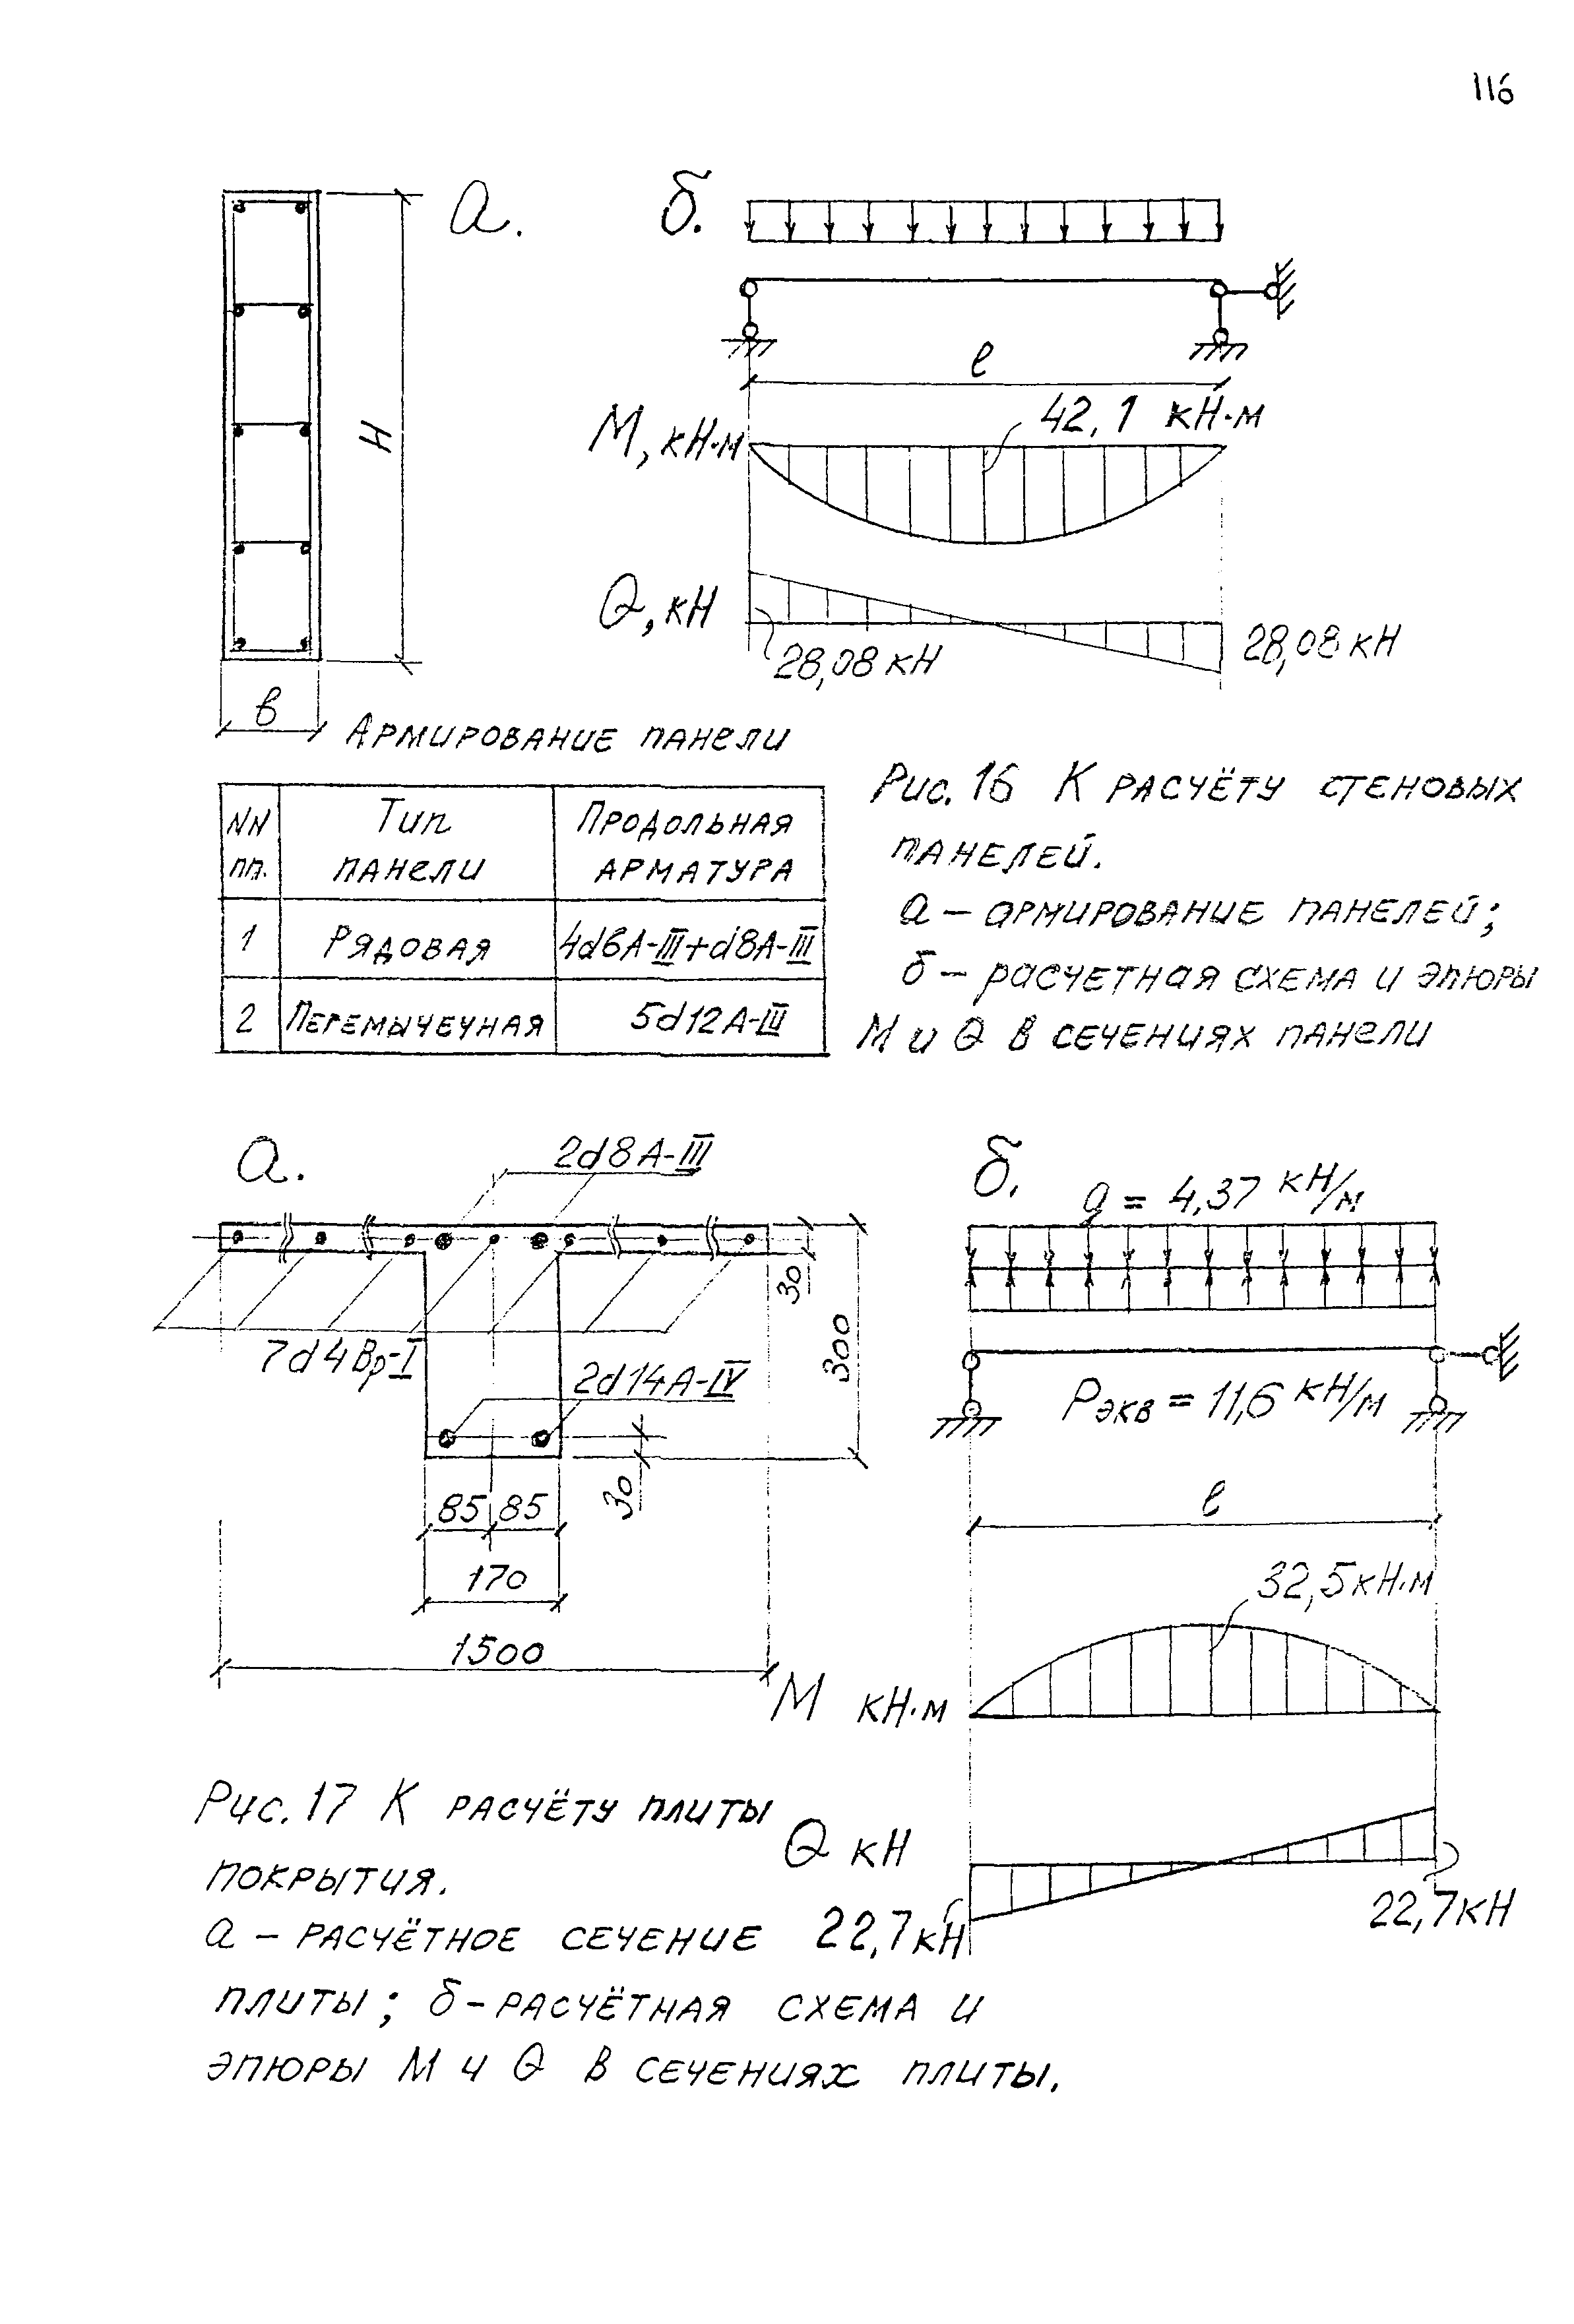 116
а.
б.
H
в
l
М, кН·м
42,1 кН·м
Q, кН
28,08 кН
28,08 кН
Армирование панели
NN пп.
Тип панели
Продольная арматура
1
Рядовая
4d6А-III+d8А-III
2
Перемычечная
5d12А-III
Рис. 16 К расчёту стеновых
панелей.
а – армирование панелей;
б – расчетная схема и эпюры
М и Q в сечениях панели
а.
2d8А-III
7d4Вр-I
2d14А-IV
30
300
30
85
85
170
1500
б.
q = 4,37 кН/м
Рэкв = 11,6 кН/м
l
32,5кН·м
М кН·м
Q кН
22,7кН
22,7кН
Рис. 17 К расчёту плиты
покрытия.
а – расчётное сечение
плиты; б – расчётная схема и
эпюры М и Q в сечениях плиты.